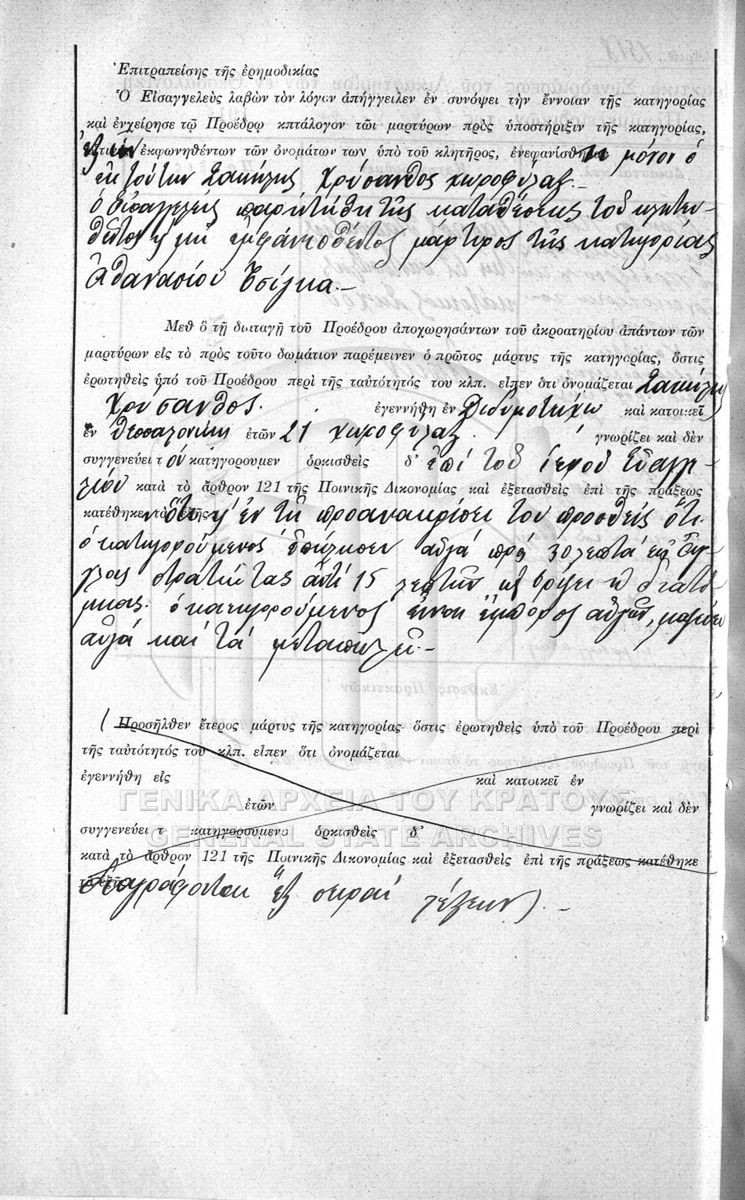 Ἐπιτραπείσης τῆς ἐρημοδικίας
Ὁ Εἰσαγγελεὺς λαβὼν τὸν λόγον ἀπήγγειλεν ἐν συνόψει τὴν ἔννοιαν τῆς κατηγορίας
καὶ ἐνχείρησε τῷ Προέδρῳ κπτάλογον τῶι μαρτύρων πρὸς ὑποστήριξιν τῆς κατηγορίας,
ἐκφωνηθέντων τῶν ὀνομάτων των ὑπὸ τοῦ κλητῆρος, ἐνεφανίσθη μόνον ὁ
ἐκ τούτων Σακέλης Χρύσανθος χωροφύλαξ.—
ὁ Εἰσαγγελεὺς παρῃτήθη τῆς καταθέσεως τοῦ κλητευ-
θέντος μὴ ἐμφανισθέντος μάρτυρος τῆς κατηγορίας
Ἀθανασίου Τσίγκα.—
Μεθ ὃ τῇ διαταγῇ τοῦ Προέδρου ἀποχωρησάντων τοῦ ἀκροατηρίου ἁπάντων τῶν
μαρτύρων εἰς τὸ πρὸς τοῦτο δωμάτιον παρέμεινεν ὁ πρῶτος μάρτυς τῆς κατηγορίας, ὅστις
ἐρωτηθεὶς ὑπὸ τοῦ Προέδρου περὶ τῆς ταὐτότητός του κλπ. εἶπεν ὅτι ὀνομάζεται Σακέλης
Χρύσανθος. ἐγεννήθη ἐν Διδυμοτείχῳ καὶ κατοικεῖ
ἐν Θεσσαλονίκῃ ἐτῶν 21 χωροφύλαξ. γνωρίζει καὶ δὲν
συγγενεύει τὸν κατηγορουμεν ὁρκισθεὶς δ' ἐπὶ τοῦ ἱεροῦ Εὐαγγε-
λίου κατὰ τὸ ἄρθρον 121 τῆς Ποινικῆς Δικονομίας καὶ ἐξετασθεὶς ἐπὶ τῆς πράξεως
κατέθηκε τὰ ἑξῆς ὅτι ἐν τῇ προανακρίσει του προσθεὶς ὅτι
ὁ κατηγορούμενος ἐπώλησεν αὐγὰ πρὸς λεπτὰ
στρατιώτας ἀντὶ 15 λεπτῶν
ὁ κατηγορούμενος εἶναι ἔμπορος αὐγῶν,
αὐγά καὶ τὰ μεταπωλεῖ.—
(Προσῆλθεν ἕτερος μάρτυς τῆς κατηγορίας ὅστις ἐρωτηθεὶς ὑπὸ τοῦ Προέδρου περὶ
τῆς ταὐτότητός του κλπ. εἶπεν ὅτι ὀνομάζεται
ἐγεννήθη εἰς καὶ κατοικεῖ ἐν
ΓΕΝΙΚΑ ΑΡΧΕΙΑ ΤΟΥ ΚΡΑΤΟΥΣ
ἐτῶν γνωρίζει καὶ δὲν
συγγενεύει τ κατηγορουμενο ὁρκισθεὶς δ'
GENERAL STATE ARCHIVES
κατὰ τὸ ἄρθρον 121 τῆς Ποινικῆς Δικονομίας καὶ ἐξετασθεὶς ἐπὶ τῆς πράξεως κατέθηκε
τὰ ἑξῆς
διαγράφονται ἓξ σειραὶ λέξεων).—